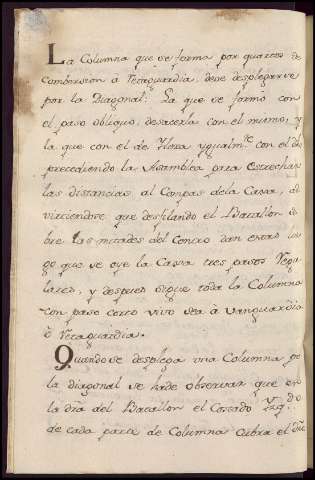 La Columna que se forma por quartos de
Combersion á Retaguardia, deve desplegarse
por la Diagonal: La que se formó con
el paso obliquo, desacerla con el mismo, y
la que con el de Ylera ygualm.te con el de
precediendo la Asamblea para estrechar
las distancias al Compas dela Caxa, ad
virtiendose que desfilando el Batallon so
bre las mitades del Centro dan estas lue
go que se oye la Caxa tres pasos Regu
lares, y despues sigue toda la Columna
con paso corto vivo sea á vanguardia
ó Retaguardia.
Quando se desplega una Columna po
la diagonal se hade observar que en
la dra del Batallon el Costado Yzq.do
de cada parte de Columna Cubra el